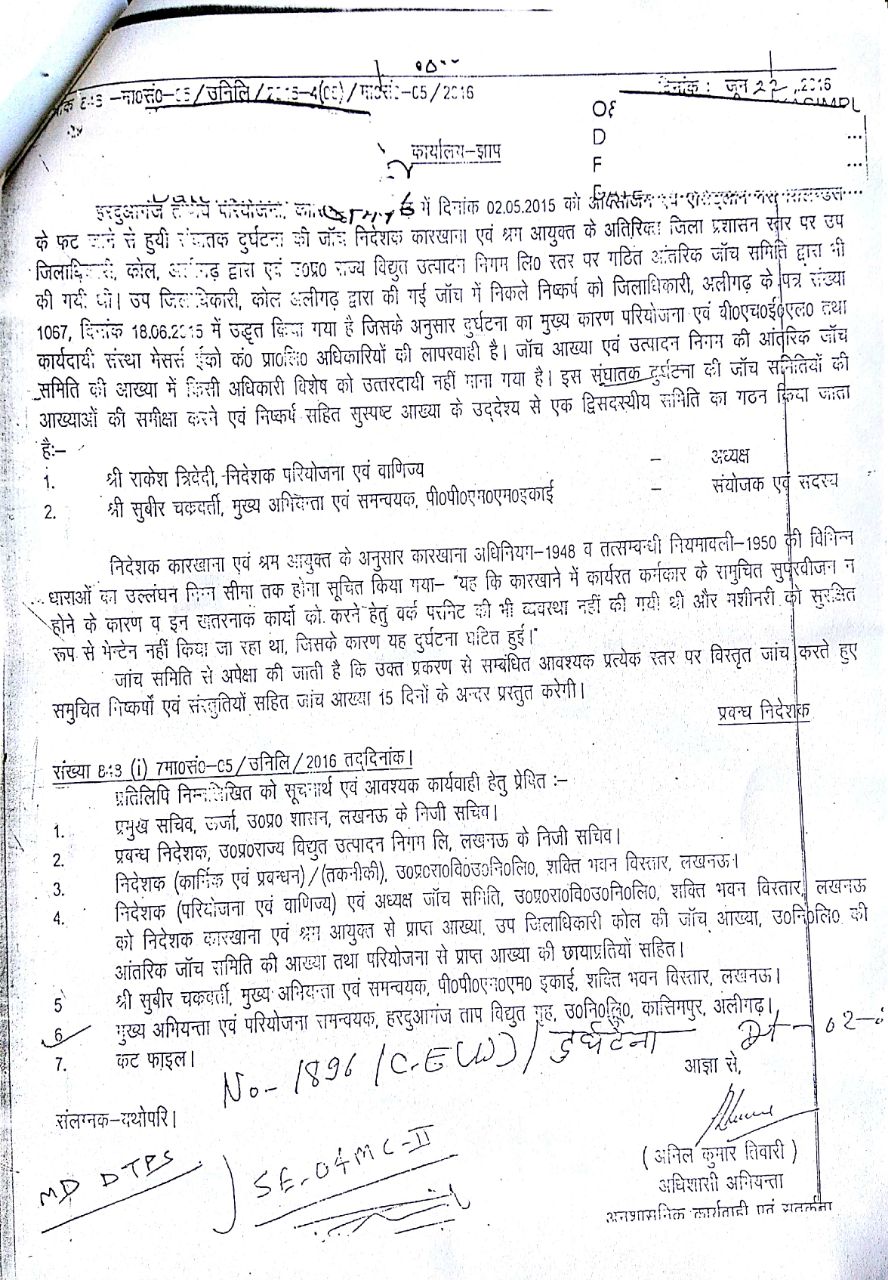 848 -मा0सं0-05/उनिलि/2016-4(06)/मा0सं0-05/2016 दिनांक : जून 22 ,2016
D
F
कार्यालय-ज्ञाप
हरदुआगंज तापीय परियोजना, में दिनांक 02.05.2015 को
के फट जाने से हुयी संघातक दुर्घटना की जाँच निदेशक कारखाना एवं श्रम आयुक्त के अतिरिक्त जिला प्रशासन स्तर पर उप
जिलाधिकारी, कोल, अलीगढ़ द्वारा एवं उ0प्र0 राज्य विद्युत उत्पादन निगम लि0 स्तर पर गठित आंतरिक जाँच समिति द्वारा भी
की गयी थी। उप जिलाधिकारी, कोल अलीगढ़ द्वारा की गई जाँच में निकले निष्कर्ष को जिलाधिकारी, अलीगढ़ के पत्र संख्या
1067, दिनांक 18.06.2015 में उद्धृत किया गया है जिसके अनुसार दुर्घटना का मुख्य कारण परियोजना एवं बी0एच0ई0एल0 तथा
कार्यदायी संस्था मेसर्स ईको कं0 प्रा0लि0 अधिकारियों की लापरवाही है। जाँच आख्या एवं उत्पादन निगम की आंतरिक जाँच
समिति की आख्या में किसी अधिकारी विशेष को उत्तरदायी नहीं माना गया है। इस संघातक दुर्घटना की जाँच समितियों की
आख्याओं की समीक्षा करने एवं निष्कर्ष सहित सुस्पष्ट आख्या के उद्देश्य से एक द्विसदस्यीय समिति का गठन किया जाता
है:-
1. श्री राकेश त्रिवेदी, निदेशक परियोजना एवं वाणिज्य - अध्यक्ष
2. श्री सुबीर चकवर्ती, मुख्य अभियन्ता एवं समन्वयक, पी0पी0एम0एम0इकाई - संयोजक एवं सदस्य
निदेशक कारखाना एवं श्रम आयुक्त के अनुसार कारखाना अधिनियम-1948 व तत्सम्बन्धी नियमावली-1950 की विभिन्न
धाराओं का उल्लंघन निम्न सीमा तक होना सूचित किया गया- "यह कि कारखाने में कार्यरत कर्मकार के समुचित सुपरवीजन न
होने के कारण व इन खतरनाक कार्यो को करने हेतु वर्क परमिट की भी व्यवस्था नहीं की गयी थी और मशीनरी को सुरक्षित
रूप से मेन्टेन नहीं किया जा रहा था, जिसके कारण यह दुर्घटना घटित हुई।"
जांच समिति से अपेक्षा की जाती है कि उक्त प्रकरण से सम्बंधित आवश्यक प्रत्येक स्तर पर विस्तृत जांच करते हुए
समुचित निष्कर्षो एवं संस्तुतियों सहित जांच आख्या 15 दिनों के अन्दर प्रस्तुत करेगी।
प्रबन्ध निदेशक
संख्या 848 (i) 7मा0सं0-05/उनिलि/2016 तद्दिनांक।
प्रतिलिपि निम्नलिखित को सूचनार्थ एवं आवश्यक कार्यवाही हेतु प्रेषित :-
1. प्रमुख सचिव, ऊर्जा, उ0प्र0 शासन, लखनऊ के निजी सचिव।
2. प्रबन्ध निदेशक, उ0प्र0राज्य विद्युत उत्पादन निगम लि, लखनऊ के निजी सचिव।
3. निदेशक (कार्मिक एवं प्रबन्धन)/(तकनीकी), उ0प्र0रा0वि0उ0नि0लि0, शक्ति भवन विस्तार, लखनऊ।
4. निदेशक (परियोजना एवं वाणिज्य) एवं अध्यक्ष जाँच समिति, उ0प्र0रा0वि0उ0नि0लि0, शक्ति भवन विस्तार, लखनऊ
को निदेशक कारखाना एवं श्रम आयुक्त से प्राप्त आख्या, उप जिलाधिकारी कोल की जाँच आख्या, उ0नि0लि0 की
आंतरिक जाँच समिति की आख्या तथा परियोजना से प्राप्त आख्या की छायाप्रतियों सहित।
5 श्री सुबीर चकवर्ती, मुख्य अभियन्ता एवं समन्वयक, पी0पी0एम0एम0 इकाई, शक्ति भवन विस्तार, लखनऊ।
6 मुख्य अभियन्ता एवं परियोजना समन्वयक, हरदुआगंज ताप विद्युत गृह, उ0नि0लि0, कासिमपुर, अलीगढ़।
7. कट फाइल।
No- 1896 /C.E(W)/दुर्घटना Dt - 02-
आज्ञा से,
संलग्नक-यथोपरि।
MD DTPS
SE-04MC-II
( अनिल कुमार तिवारी )
अधिशासी अभियन्ता
अनुशासनिक कार्यवाही एवं सतर्कता